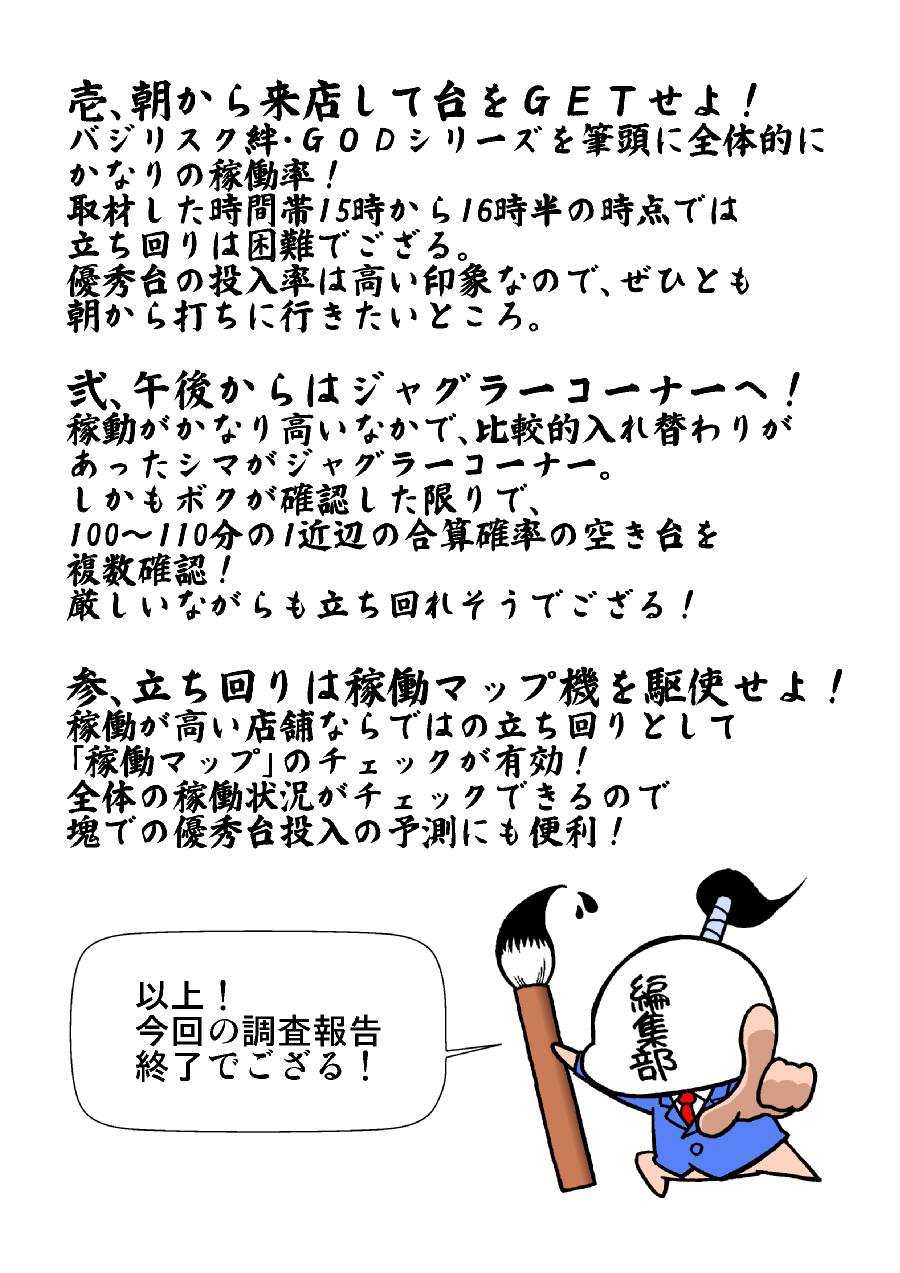 壱、朝から来店して台をＧＥＴせよ！
バジリスク絆・ＧＯＤシリーズを筆頭に全体的に
かなりの稼働率！
取材した時間帯15時から16時半の時点では
立ち回りは困難でござる。
優秀台の投入率は高い印象なので、ぜひとも
朝から打ちに行きたいところ。
弐、午後からはジャグラーコーナーへ！
稼動がかなり高いなかで、比較的入れ替わりが
あったシマがジャグラーコーナー。
しかもボクが確認した限りで、
100～110分の1近辺の合算確率の空き台を
複数確認！
厳しいながらも立ち回れそうでござる！
参、立ち回りは稼働マップ機を駆使せよ！
稼働が高い店舗ならではの立ち回りとして
「稼働マップ」のチェックが有効！
全体の稼働状況がチェックできるので
塊での優秀台投入の予測にも便利！
以上！
今回の調査報告
終了でござる！
編集部